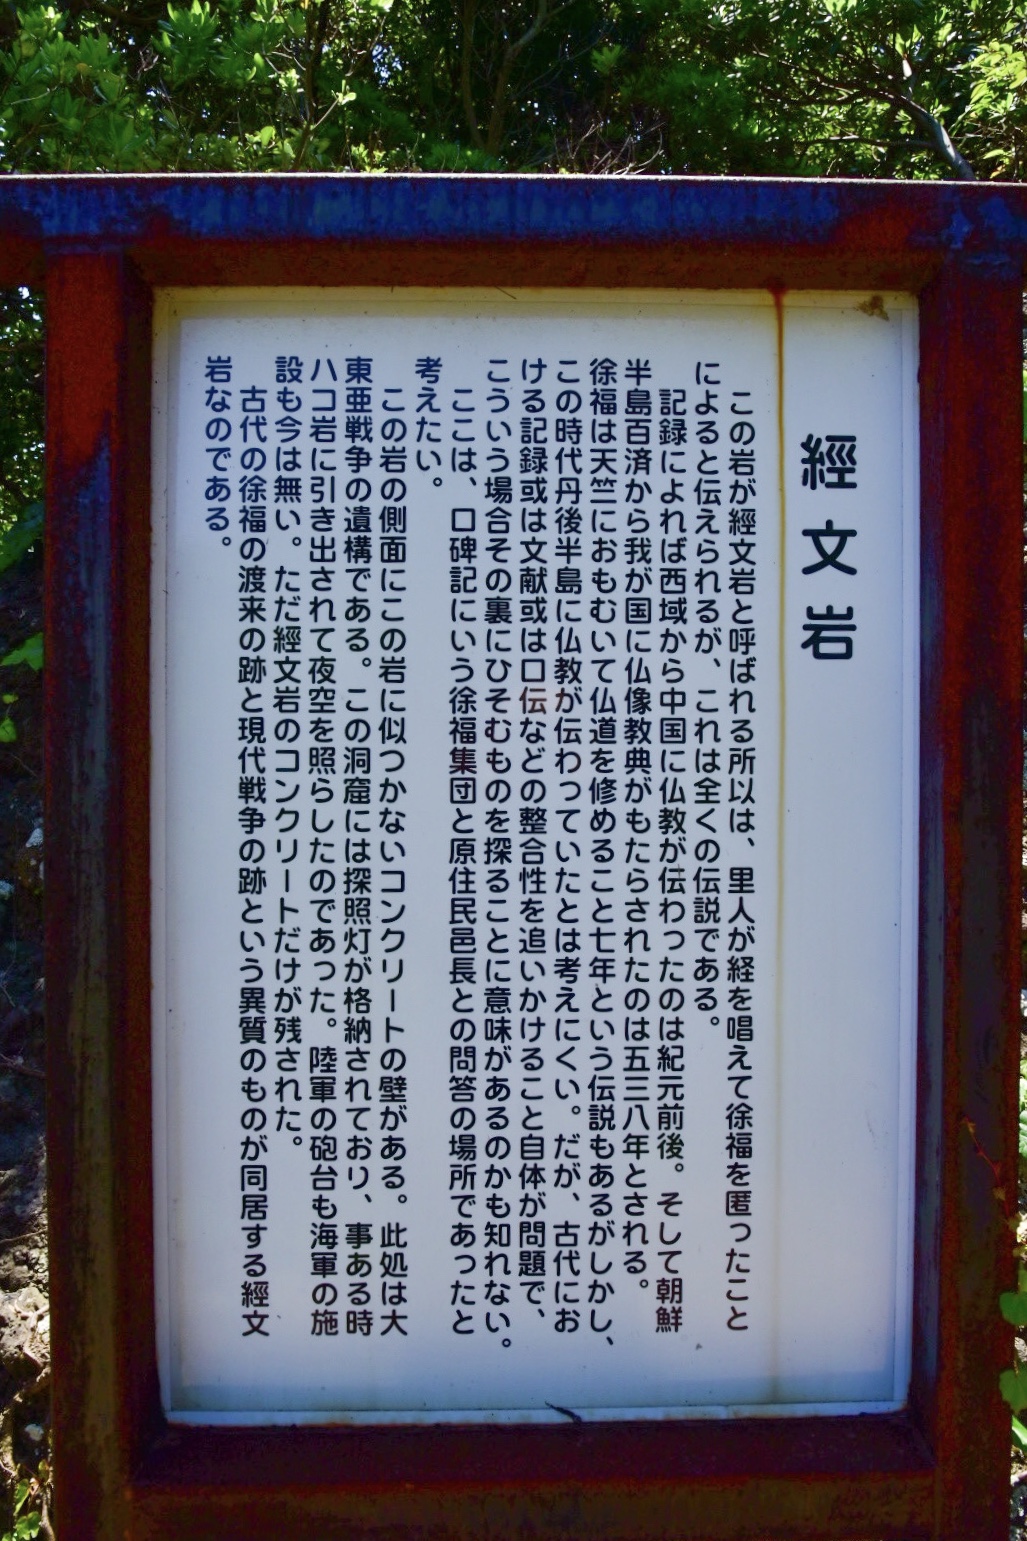 經文岩
この岩が經文岩と呼ばれる所以は、里人が経を唱えて徐福を匿ったこと
によると伝えられるが、これは全くの伝説である。
記録によれば西域から中国に仏教が伝わったのは紀元前後。そして朝鮮
半島百済から我が国に仏像教典がもたらされたのは五三八年とされる。
徐福は天竺におもむいて仏道を修めること七年という伝説もあるがしかし、
この時代丹後半島に仏教が伝わっていたとは考えにくい。だが、古代にお
ける記録或は文献或は口伝などの整合性を追いかけること自体が問題で、
こういう場合その裏にひそむものを探ることに意味があるのかも知れない。
ここは、口碑記にいう徐福集団と原住民邑長との問答の場所であったと
考えたい。
この岩の側面にこの岩に似つかないコンクリートの壁がある。此処は大
東亜戦争の遺構である。この洞窟には探照灯が格納されており、事ある時
ハコ岩に引き出されて夜空を照らしたのであった。陸軍の砲台も海軍の施
設も今は無い。ただ經文岩のコンクリートだけが残された。
古代の徐福の渡来の跡と現代戦争の跡という異質のものが同居する經文
岩なのである。